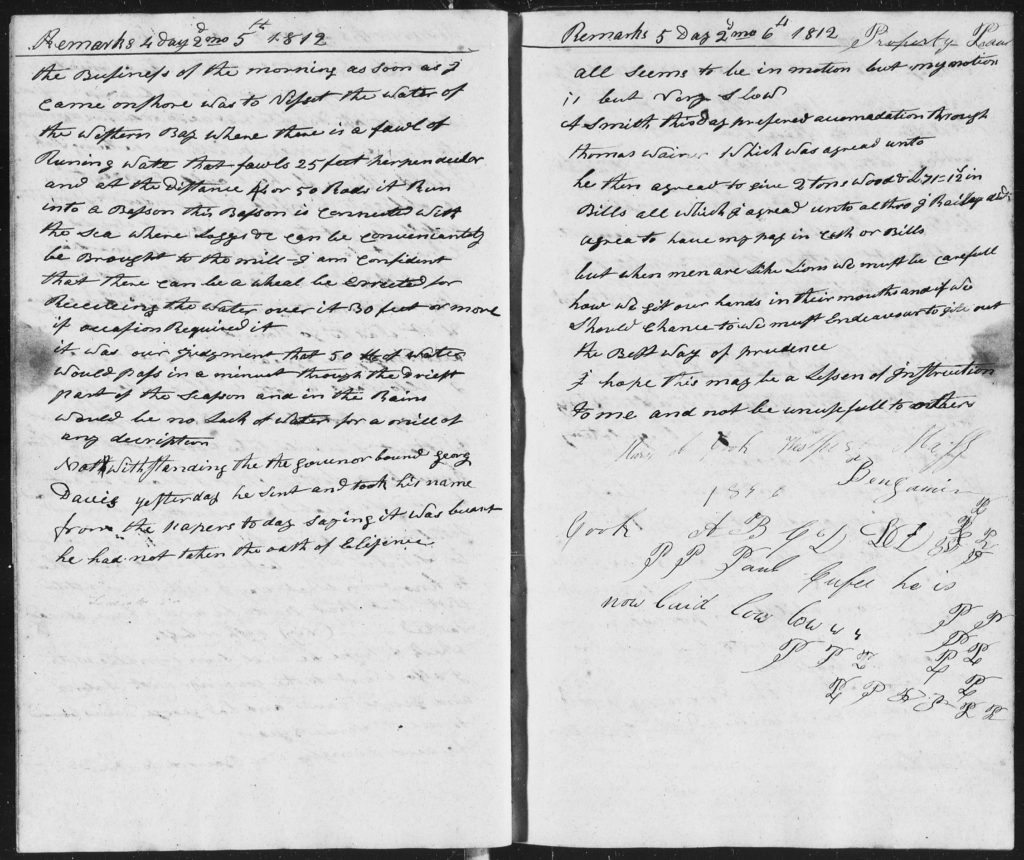 Remarks 4 day 2d mo 5th 1812
the Business of the morning as soon as I
Came onshore was to Visset the water of
the Western Bay Where there is a fawl of
Runing Wate that fawls 25 feet perpendeculer
and at the Distance of 50 Rods it Run
into a Basson this Basson is Connected With
the sea where Loggs &c can be conveniantly
be Brought to the mill I am Confident
that there can be a wheal be Errected for
Receiveing the Water over it 30 feet or more
if occasion Required it
it was our Judgment that 50 of Water
Would Pass in a minuet through the Driest
part of the Season and in the Rains
Would be no Lack of Water for a mill of
any decription
Notwithstanding the the govenor bound georg
Davis yesterday he sent and took his name
from the papers to day saying it was
he had not taken the oath of
Remarks 5 Day 2d mo 6th 1812 Property
all seems to be in motion but my motion
is but Very Slow
A Smith this day prefered acomadation through
thomas Wainer Which was agread unto
he then agread to give 2 tons Wood & in
Bills all which I agread unto altho J
agrea to have my pay in Cash or Bills
but when men are Like Lions we must be carefull
how we git our hands in their mouths and if we
Should Chance to we must Endeavour to git out
the Best Way of prudence
I hope this may be a Lessen of Instruction
to me and not be unusefull to others
Cook
Benjamin
Cook A B C D
P P Paul Cufee he is
now laid low low
P P
P P